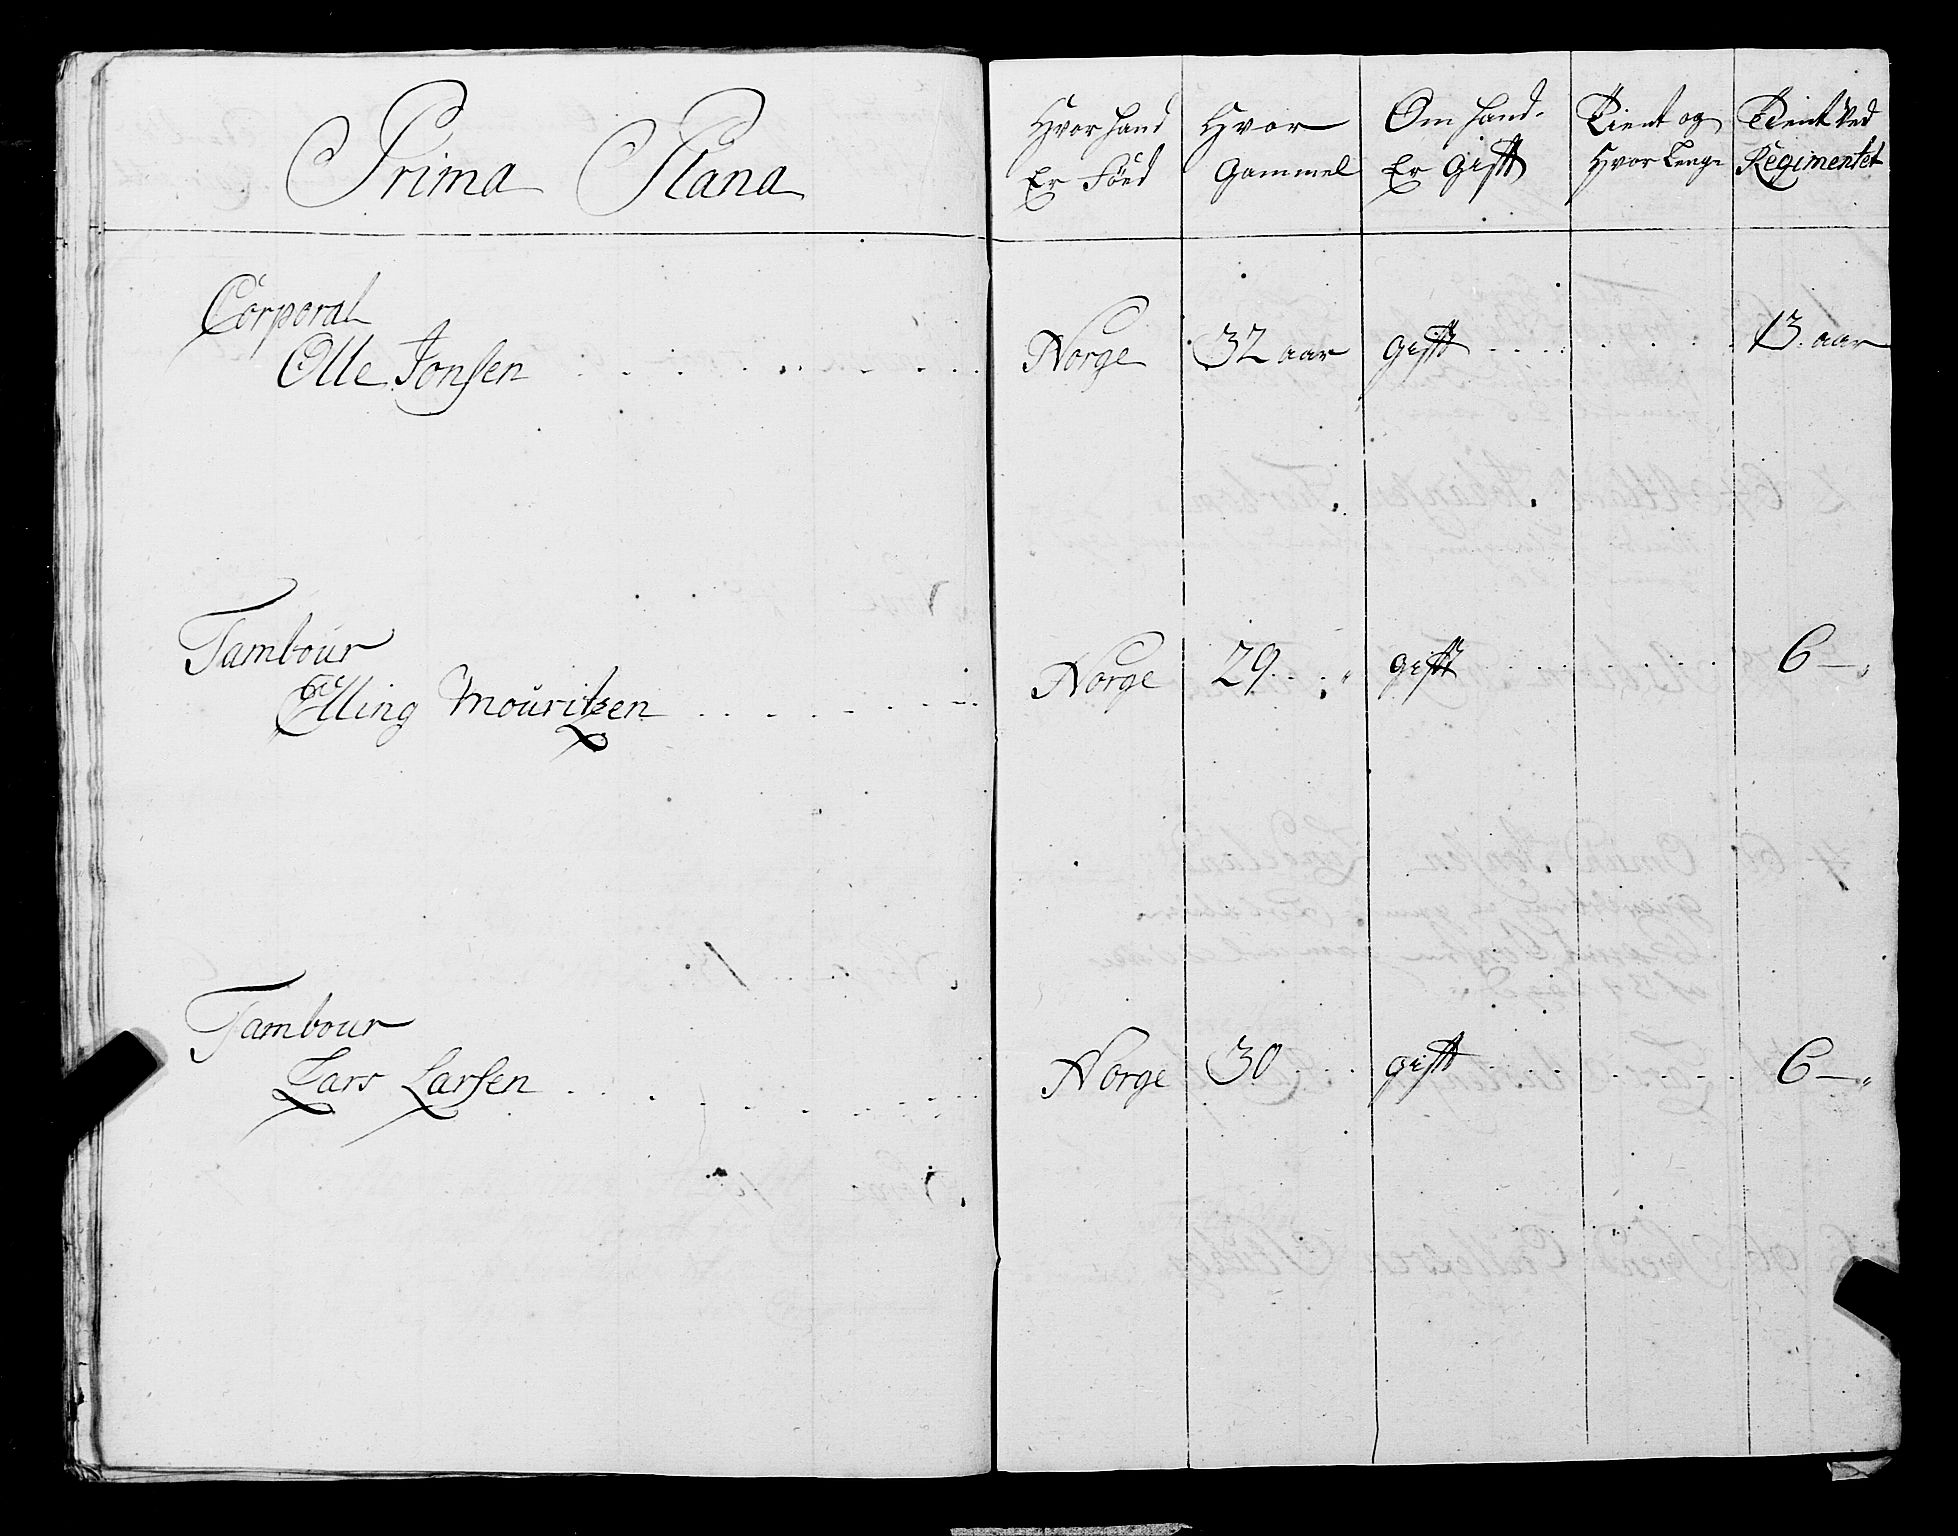 Prima Plana
Hvor hand Er Föed
Hvor gammel
Om hand Er gifft
Tient og Hvor Lenge
Tient Ved Regimentet
Corporal
Olle Jonsen Norge 32 aar gifft 13 aar
Tambour
Elling Mouritzen Norge 29 gifft 6 — "
Tambour
Lars Larsen Norge 30 gifft 6 — "